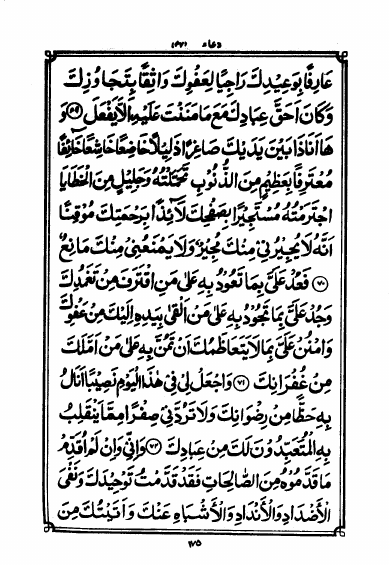 دعاء
عَارِفًا بِوَعِيدِكَ رَاجِيًا لِعَفْوِكَ وَاثِقًا بِتَجَاوُزِكَ
وَكَانَ اَحَقَّ عِبَادِكَ مَعَ مَا مَنَنْتَ عَلَيْهِ اَلَّا يَفْعَلَ وَ
هَا اَنَا ذَا بَيْنَ يَدَيْكَ صَاغِرًا ذَلِيلًا خَاضِعًا خَاشِعًا خَائِفًا
مُعْتَرِفًا بِعَظِيمٍ مِنَ الذُّنُوبِ تَحَمَّلْتُهُ وَجَلِيلٍ مِنَ الْخَطَايَا
اجْتَرَمْتُهُ مُسْتَجِيرًا بِصَفْحِكَ لَائِذًا بِرَحْمَتِكَ مُوقِنًا
اَنَّهُ لَا يُجِيرُنِي مِنْكَ مُجِيرٌ وَلَا يَمْنَعُنِي مِنْكَ مَانِعٌ
﴿۷۰﴾ فَعُدْ عَلَيَّ بِمَا تَعُودُ بِهِ عَلَى مَنِ اقْتَرَفَ مِنْ تَغَمُّدِكَ
وَجُدْ عَلَيَّ بِمَا تَجُودُ بِهِ عَلَى مَنْ اَلْقَى بِيَدِهِ اِلَيْكَ مِنْ عَفْوِكَ
وَامْنُنْ عَلَيَّ بِمَا لَا يَتَعَاظَمُكَ اَنْ تَمُنَّ بِهِ عَلَى مَنْ اَمَّلَكَ
مِنْ غُفْرَانِكَ ﴿۷۱﴾ وَاجْعَلْ لِي فِي هٰذَا الْيَوْمِ نَصِيبًا اَنَالُ
بِهِ حَظًّا مِنْ رِضْوَانِكَ وَلَا تَرُدَّنِي صِفْرًا مِمَّا يَنْقَلِبُ
بِهِ الْمُتَعَبِّدُونَ لَكَ مِنْ عِبَادِكَ ﴿۷۲﴾ وَاِنِّي وَاِنْ لَمْ اُقَدِّمْ
مَا قَدَّمُوهُ مِنَ الصَّالِحَاتِ فَقَدْ قَدَّمْتُ تَوْحِيدَكَ وَنَفْيَ
الْاَضْدَادِ وَالْاَنْدَادِ وَالْاَشْبَاهِ عَنْكَ وَاَتَيْتُكَ مِنَ